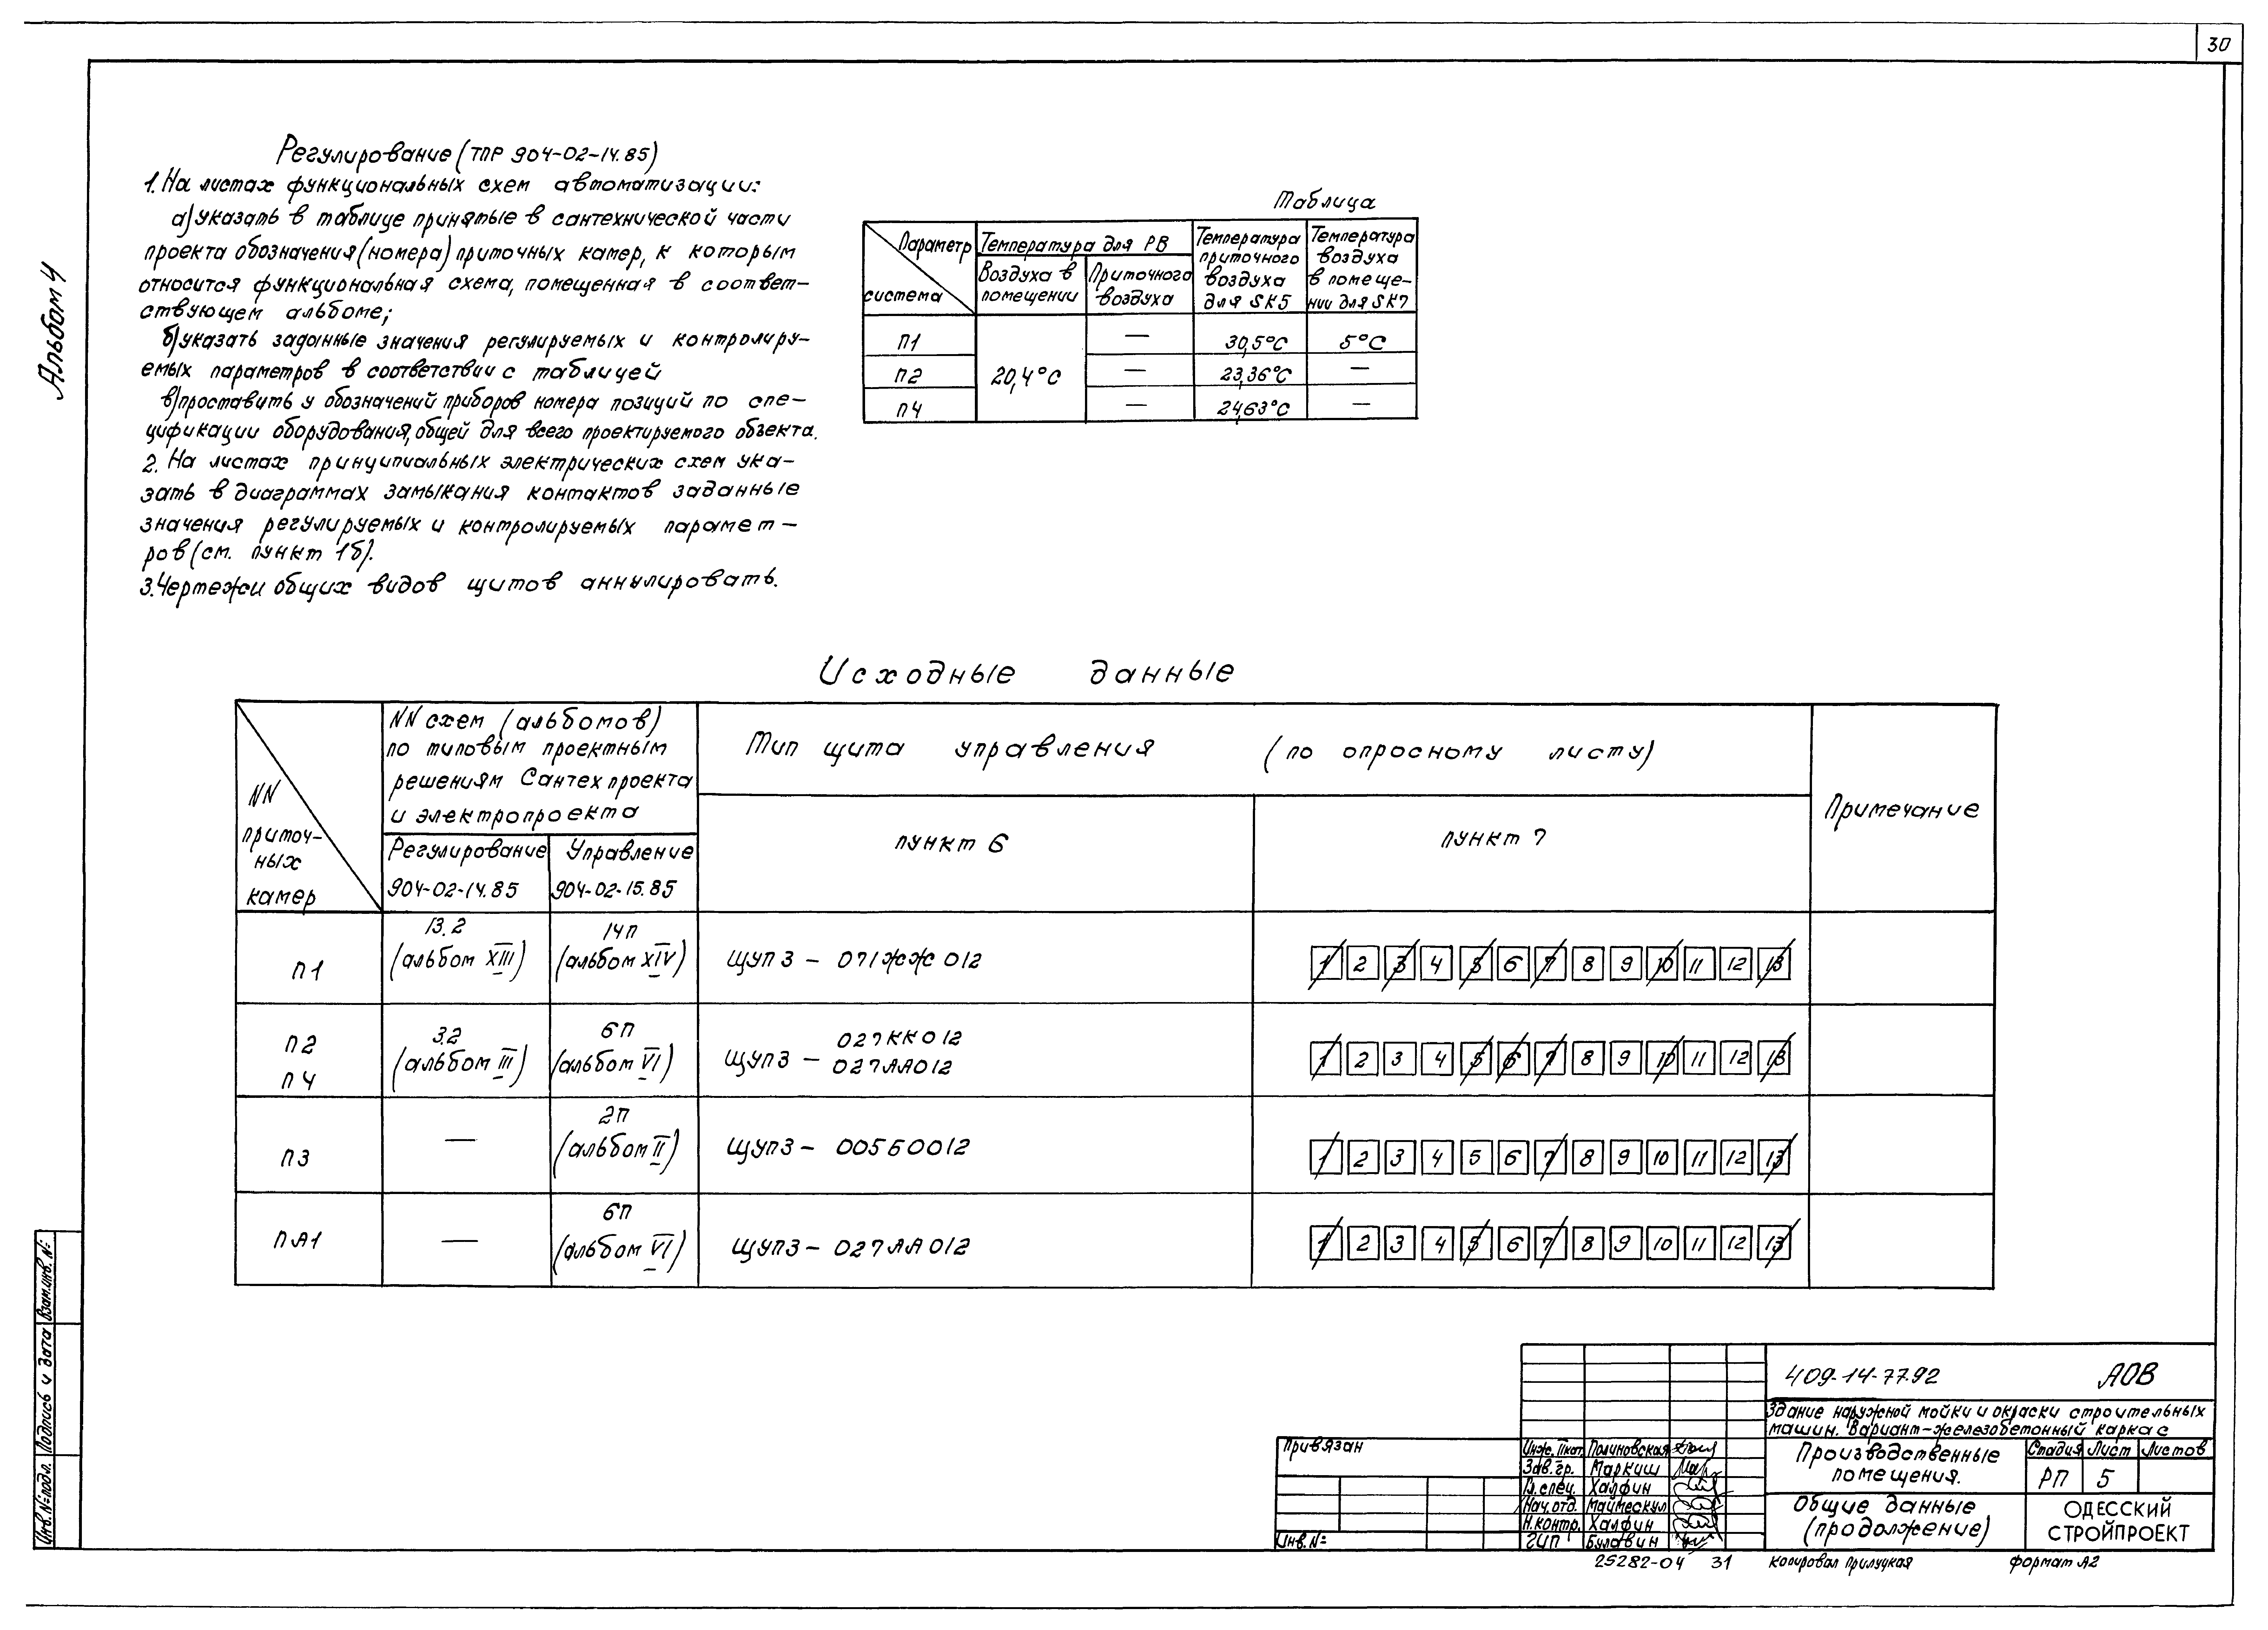 30
Альбом 4
Регулирование (ТПР 904-02-14.85)
1. На листах функциональных схем автоматизации:
а) указать в таблице принятые в сантехнической части
проекта обозначения (номера) приточных камер, к которым
относится функциональная схема, помещенная в соответ-
ствующем альбоме;
б) указать заданные значения регулируемых и контролиру-
емых параметров в соответствии с таблицей
в) проставить у обозначений приборов номера позиций по спе-
цификации оборудования, общей для всего проектируемого объекта.
2. На листах принципиальных электрических схем ука-
зать в диаграммах замыкания контактов заданные
значения регулируемых и контролируемых парамет-
ров (см. пункт 1б).
3. Чертежи общих видов щитов аннулировать.
Таблица
Параметр
система
Температура для РВ
Воздуха в помещении
Приточного воздуха
Температура приточного воздуха для SK5
Температура воздуха в помеще-нии для SK7
П1 — 30,5°С 5°С
П2 20,4°С — 23,36°С —
П4 — 24,63°С —
Исходные данные
NN приточ-ных камер
NN схем (альбомов)
по типовым проектным
решениям Сантехпроекта
и электропроекта
Регулирование
904-02-14.85
Управление
904-02-15.85
Тип щита управления (по опросному листу)
пункт 6
пункт 7
Примечание
П1
13.2
(альбом XIII)
14П
(альбом XIV)
ЩУПЗ - 071ЖЖ012
1 2 3 4 5 6 7 8 9 10 11 12 13
П2
П4
3.2
(альбом III)
6П
(альбом VI)
ЩУПЗ - 027КК012
027АА012
1 2 3 4 5 6 7 8 9 10 11 12 13
П3
—
2П
(альбом II)
ЩУПЗ - 005Б0012
1 2 3 4 5 6 7 8 9 10 11 12 13
ПА1
—
6П
(альбом VI)
ЩУПЗ - 027АА012
1 2 3 4 5 6 7 8 9 10 11 12 13
Инв.№подл. Подпись и дата Взам.инв.№
Привязан
Инв.№
Инж. IIкат. Полиновская
Зав.гр. Маркиш
Гл.спец. Халфин
Нач.отд. Маймескул
Н.контр. Халфин
ГИП Булавин
409-14-77.92 АОВ
Здание наружной мойки и окраски строительных
машин. Вариант-железобетонный каркас
Производственные
помещения.
Стадия Лист Листов
РП 5
Общие данные
(продолжение)
ОДЕССКИЙ
СТРОЙПРОЕКТ
25282-04 31
Копировал Прилуцкая
формат А2